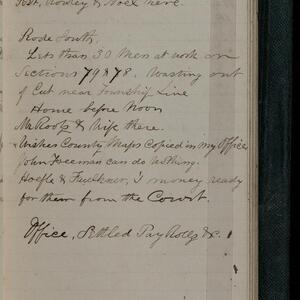 Howley & Noel here.
Rode South.
Less than 30 Men at work on
Sections 79 & 78. Wasting out
of Cut near Township Line
Home before Noon
Mr Roots & Wife there.
Wishes County Maps Copied in my Office
John Freeman can do nothing.
Hoefle & Faulkner, I money ready
for them from the Court.
Office, Settled Pay Rolls &c.